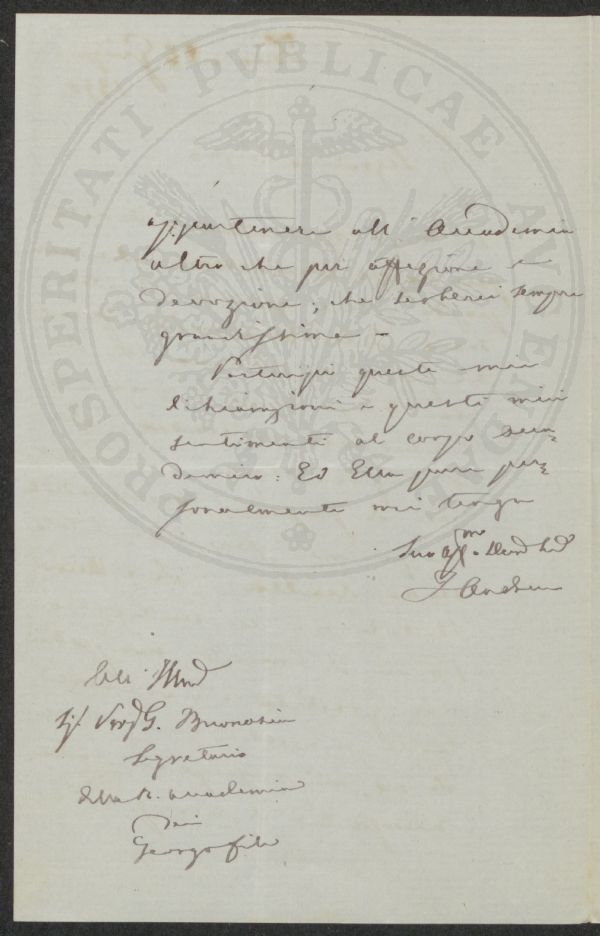 PROSPERITATI PVBLICAE AVGENDAE
appartenere all' Accademia
altro che per affezione e
devozione; che serberei sempre
gratissime –
Partecipi queste mie
dichiarazioni e questi miei
sentimenti al corpo acca=
demico: Ed Ella pure per=
sonalmente mi tenga
Suo
Segretario
della R. Accademia
dei
Georgofili